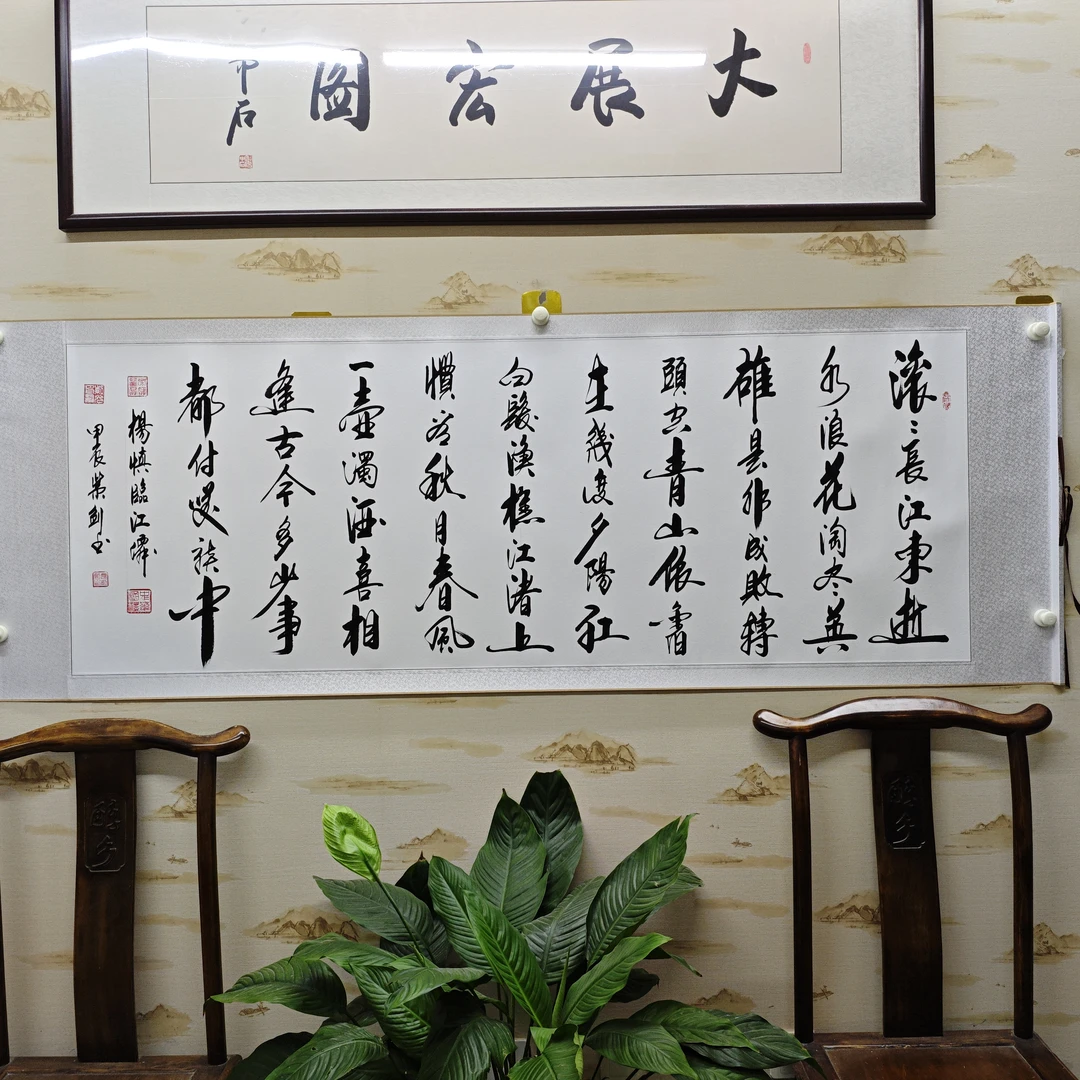 大展宏圖
中石
滚〻長江東逝
水浪花淘尽英
雄是非成敗轉
頭空青山依舊
在幾度夕陽红
白髮漁樵江渚上
慣看秋月春風
一壺濁酒喜相
逢古今多少事
都付笑談中
楊慎臨江僊
甲辰榮剑书